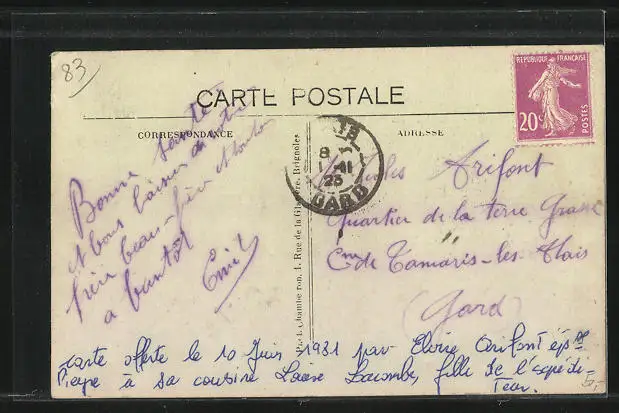 83
CARTE POSTALE
CORRESPONDANCE
ADRESSE
REPUBLIQUE FRANÇAISE
20c
POSTES
8
1 - 11
25
GARD
Bonne santé
et bons baisers de ton
beau-frère et tonton
a bientôt
Emil
Arifont
Quartier de la terre Grasse
Cne de Tamaris-les-Alais
(Gard)
1. Rue de la Glacière, Brignoles
carte offerte le 10 Juin 1931 par Eloise Arifont ép.
à sa cousine Lacombe, fille de l'expédi-
teur.